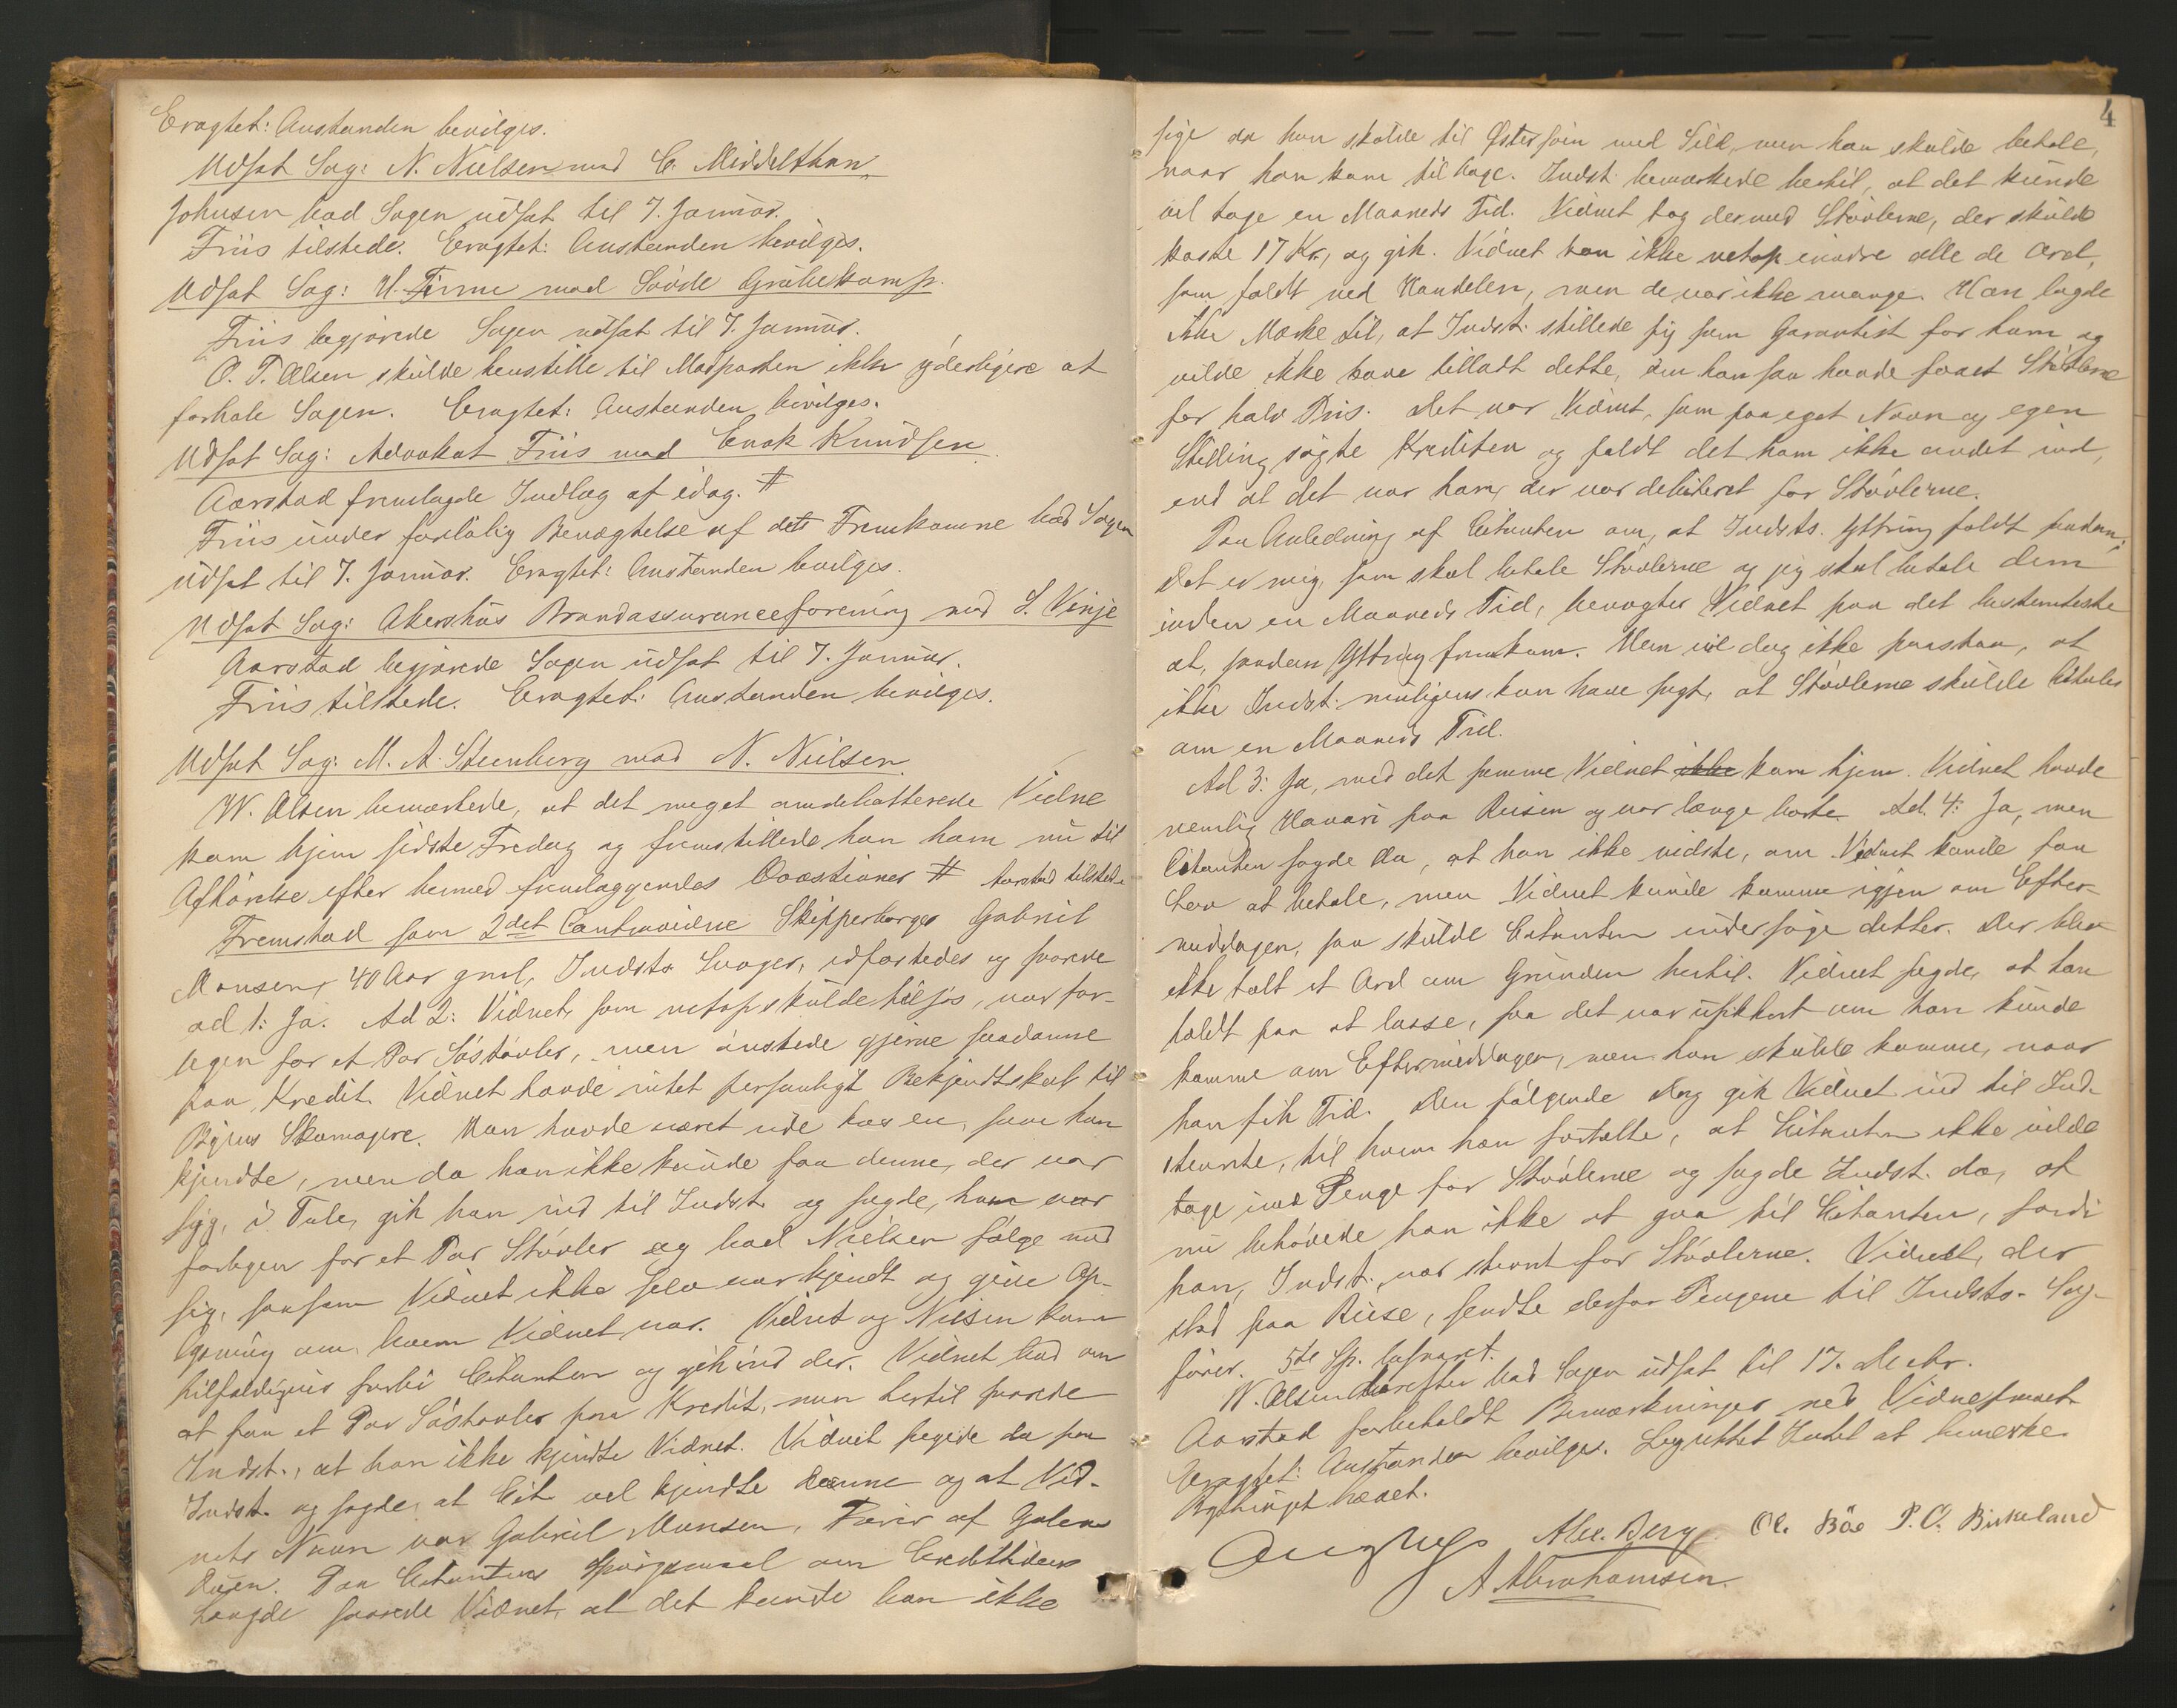 Eragtet: Anstanden bevilges.
Udsat Sag: N. Nielsen mod C. Middelthon
Johnsen bad Sagen udsat til 7. Januar.
Friis tilstede. Eragtet: Anstanden bevilges.
Udsat Sag: H. Finne mod Søvde Grubekomp.
Friis begjærede Sagen udsat til 7. Januar.
O. T. Olsen skulde henstille til Modparten ikke yderligere at
forhale Sagen. Eragtet: Anstanden bevilges.
Udsat Sag: Advokat Friis mod Enok Knudsen
Aarstad fremlagde Indlæg af idag. #
Friis under foreløbig Benægtelse af det Fremkomne bad Sagen
udsat til 7. Januar. Eragtet: Anstanden bevilges.
Udsat Sag: Akershus Brandassuranceforening mod S. Vinje
Aarstad begjærede Sagen udsat til 7. Januar.
Friis tilstede. Eragtet: Anstanden bevilges.
Udsat Sag: M. A. Steenberg mod N. Nielsen.
W. Olsen bemærkede, at det meget omdebatterede Vidne
kom hjem sidste Fredag og fremstillede han ham nu til
Afhørelse efter hermed fremlæggendes Qvæstioner # Aarstad tilstede
Fremstod som 2det Contravidne Skipperborger Gabriel
Monsen, 40 Aar gml, Indsts Svoger, edfæstedes og svarede
ad 1: Ja. Ad 2: Vidnet, som netop skulde tilsjøs, var for-
legen for et Par Søstøvler, men ønskede gjerne saadanne
paa Kredit. Vidnet havde intet personligt Bekjendtskab til
Byens Skomagere. Han havde været ude hos en, som han
kjendte, men da han ikke kunde faa denne, der var
syg, i Tale, gik han ind til Indst. og sagde, han var
forlegen for et Par Støvler og bad Nielsen følge med
sig, saasom Vidnet ikke selv var kjendt og give Op-
lysning om, hvem Vidnet var. Vidnet og Nielsen kom
tilfældigvis forbi Citanten og gik ind der. Vidnet bad om
at faa et Par Søstøvler paa Kredit, men hertil svarede
Indst., at han ikke kjendte Vidnet. Vidnet pegede da paa
Indst. og sagde, at Cit. vel kjendte denne og at Vid-
nets Navn var Gabriel Monsen, Fører af Galeas
Duen. Paa Citantens Spørgsmaal om Credittidens
Længde svarede Vidnet, at det kunde han ikke
4
sige da han skulde til Østersøen med Sild, men han skulde betale,
naar han kom tilbage. Indst. bemærkede hertil, at det kunde
vel tage en Maaneds Tid. Vidnet tog dermed Støvlerne, der skulde
koste 17 Kr., og gik. Vidnet kan ikke netop erindre alle de Ord,
som faldt ved Handelen, men de var ikke mange. Han lagde
ikke Mærke til, at Indst. stillede sig som Garantist for ham og
vilde ikke have tilladt dette, om han saa havde faaet Støvlerne
for halv Pris. Det var Vidnet, som paa eget Navn og egen
Stilling søgte Krediten og faldt det ham ikke andet ind,
end at det var ham, der var debiteret for Støvlerne.
Paa Anledning af Citanten om, at Indsts. Yttring faldt saadan:
Det er mig, som skal betale Støvlerne og jeg skal betale dem
inden en Maaneds Tid, benægter Vidnet paa det bestemteste
at, saadan Yttring fremkom. Han vil dog ikke paastaa, at
ikke Indst. muligens kan have sagt, at Støvlerne skulde betales
om en Maaneds Tid.
Ad 3: Ja, med det samme Vidnet ikke kom hjem. Vidnet havde
nemlig Havari paa Reisen og var længe borte. Ad. 4: Ja, men
Citanten sagde da, at han ikke vidste, om Vidnet kunde faa
Lov at betale, men Vidnet kunde komme igjen om Efter-
middagen, saa skulde Citanten undersøge dette. Der blev
ikke talt et Ord om Grunden hertil. Vidnet sagde, at han
holdt paa at losse, saa det var usikkert om han kunde
komme om Eftermiddagen, men han skulde komme, naar
han fik Tid. Den følgende Dag gik Vidnet ind til Ind-
stevnte, til hvem han fortalte, at Citanten ikke vilde
tage imod Penge for Støvlerne og sagde Indst. da, at
nu behøvede han ikke at gaa til Citanten, fordi
han, Indst., var stevnt for Støvlerne. Vidnet, der
stod paa Reise, sendte derfor Pengene til Indsts. Sag-
fører. 5te Sp. besvaret.
W. Olsen herefter bad Sagen udsat til 17. Decbr.
Aarstad forbeholdt Bemærkninger ved Vidnesmaalet
Eragtet: Anstanden bevilges. Lagrettet Intet at bemærke.
Bythinget hævet.
Alex. Berg. Ol. Böe P. O. Birkeland
A Abrahamsen.